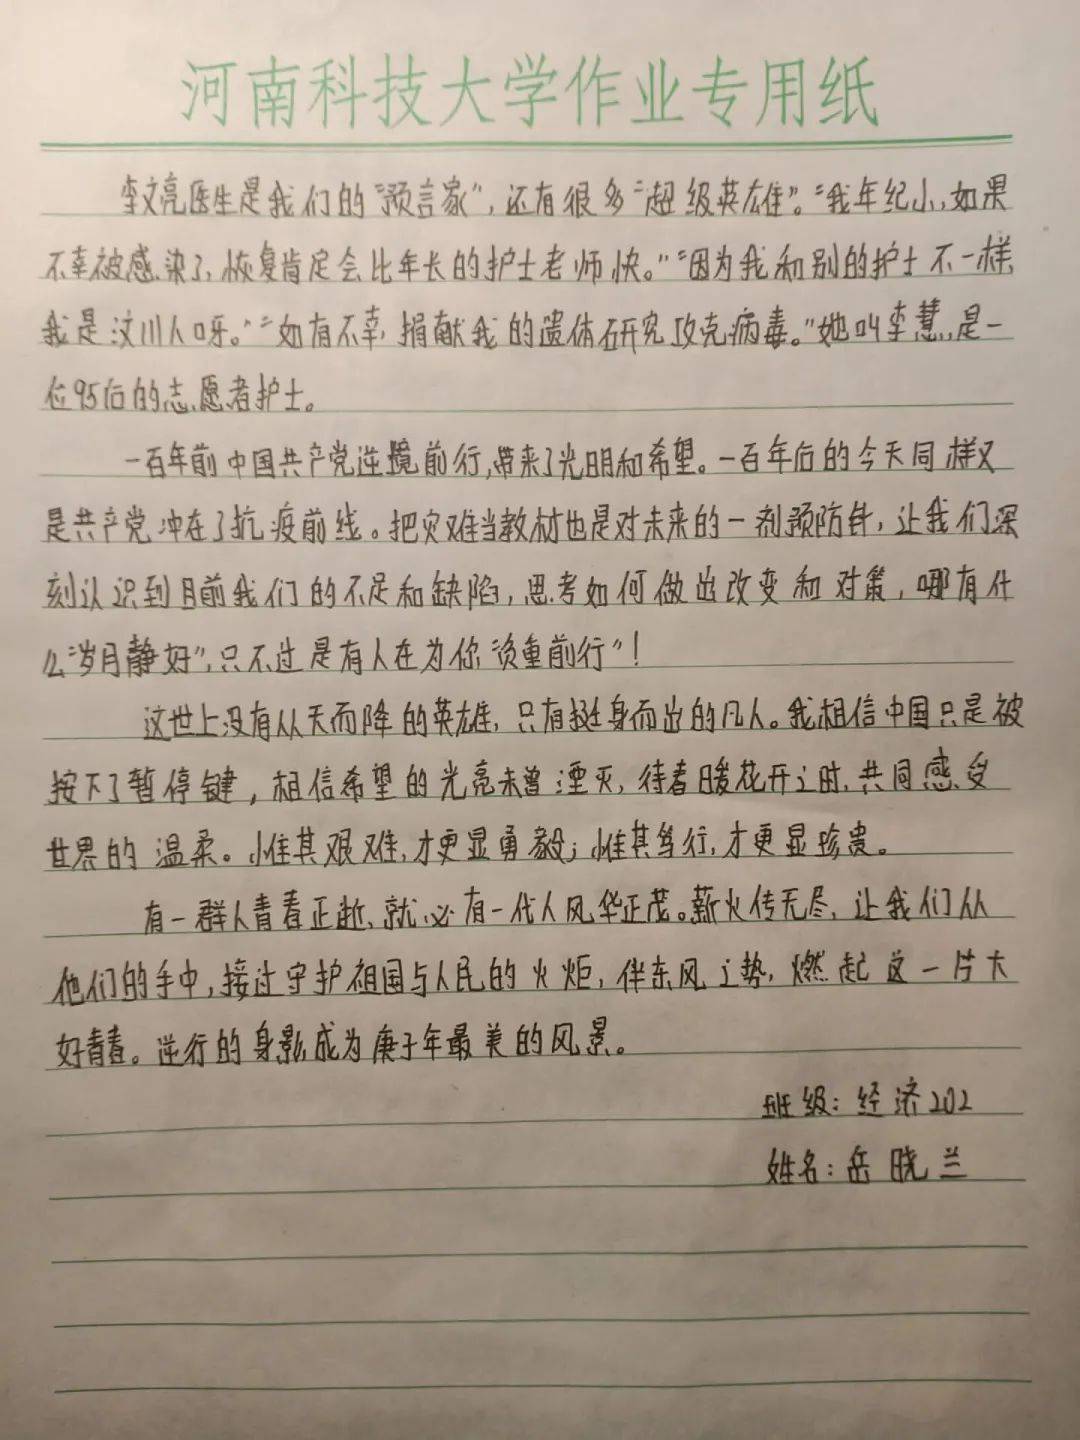 河南科技大学作业专用纸
李文亮医生是我们的“预言家”,还有很多“超级英雄”。“我年纪小,如果
不幸被感染了,恢复肯定会比年长的护士老师快。”“因为我和别的护士不一样,
我是汶川人呀。”“如有不幸,捐献我的遗体研究攻克病毒。”她叫李慧,是一
位95后的志愿者护士。
一百年前中国共产党逆境前行,带来了光明和希望。一百年后的今天同样又
是共产党冲在了抗疫前线。把灾难当教材也是对未来的一剂预防针,让我们深
刻认识到目前我们的不足和缺陷,思考如何做出改变和对策,哪有什
么“岁月静好”,只不过是有人在为你“负重前行”!
这世上没有从天而降的英雄,只有挺身而出的凡人。我相信中国只是被
按下了暂停键,相信希望的光亮未曾湮灭,待春暖花开之时,共同感受
世界的温柔。惟其艰难,才更显勇毅;惟其笃行,才更显珍贵。
有一群人青春正逝,就必有一代人风华正茂。薪火传无尽,让我们从
他们的手中,接过守护祖国与人民的火炬,伴东风之势,燃起这一片大
好青春。逆行的身影成为庚子年最美的风景。
班级:经济202
姓名:岳晓兰